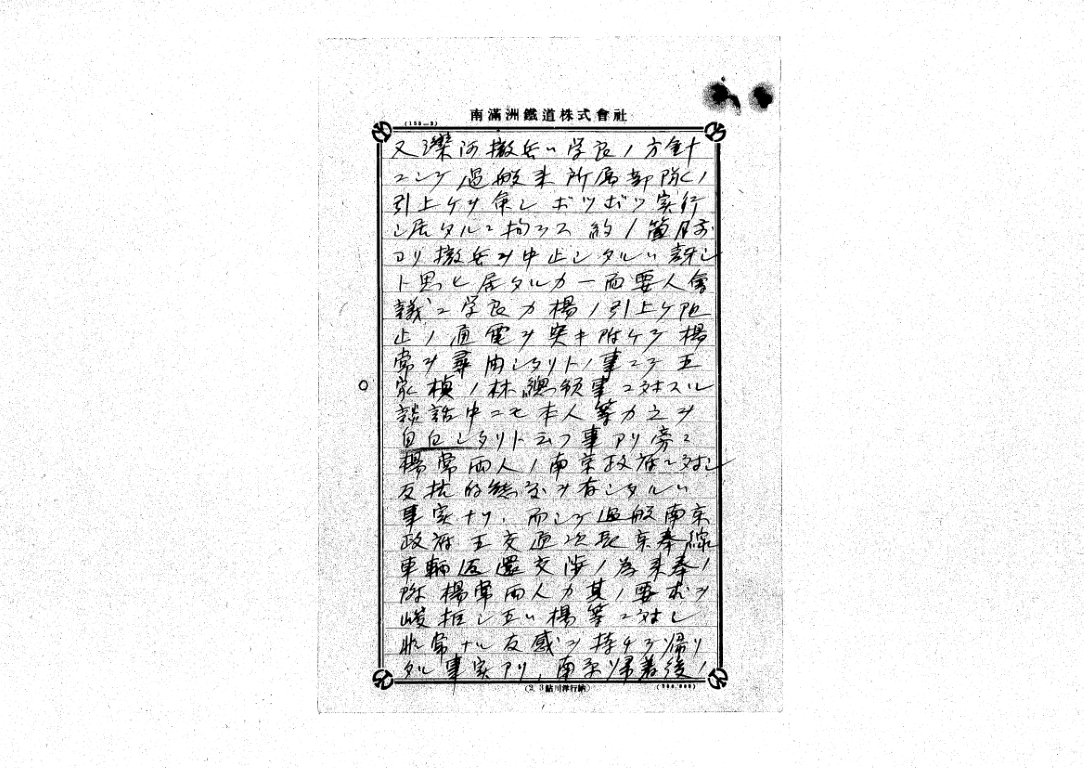 南滿洲鐵道株式會社
又灤河撤兵ハ学良ノ方針
ニシテ過般来所属部隊ノ
引上ケヲ命シボツボツ実行
シ居タルニ拘ラス約ノ箇月前
ヨリ撤兵ヲ中止シタルハ訝シ
ト思ヒ居タルカ一面要人會
議ニ学良カ楊ノ引上ケ阻
止ノ通電ヲ突キ附ケテ楊
常ヲ尋問シタリトノ事ニテ王
家楨ノ林總領事ニ対スル
談話中ニモ本人等カ之ヲ
自白シタリト云フ事アリ旁々
楊常両人ノ南京政府ニ対シ
反抗的態度ヲ有シタルハ
事実ナリ、而シテ過般南京
政府王交通次長京奉線
車輛返還交渉ノ為来奉ノ
際楊常両人カ其ノ要求ヲ
峻拒シ王ハ楊等ニ対シ
非常ナル反感ヲ持チテ帰リ
タル事実アリ、南京帰着後ノ